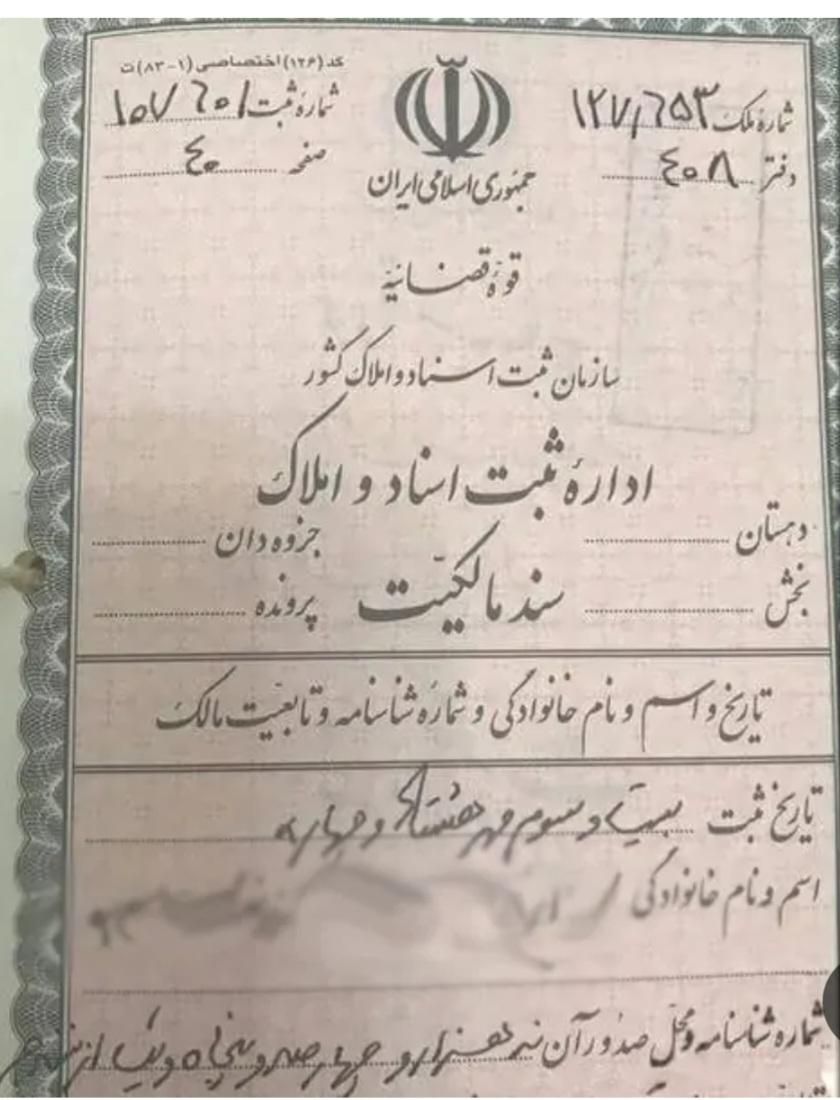 کد (۱۲۶) اختصاصی (۱-۸۳) ت
شماره ملک ۱۲۷/۶۵۳
شماره ثبت ۱۰۷۶۰۱
دفتر ۴۰۸
صفحه ۴۰
جمهوری اسلامی ایران
قوهٔ قضائیه
سازمان ثبت اسناد و املاک کشور
ادارهٔ ثبت اسناد و املاک
دهستان جزوه دان
سند مالکیت
بخش پرونده
تاریخ و اسم و نام خانوادگی و شماره شناسنامه و تابعیت مالک
تاریخ ثبت بیست و سوم مهر هشتاد و چهار
اسم و نام خانوادگی
شماره شناسنامه و محل صدور آن هزار و چهارصد و پنجاه و یک از